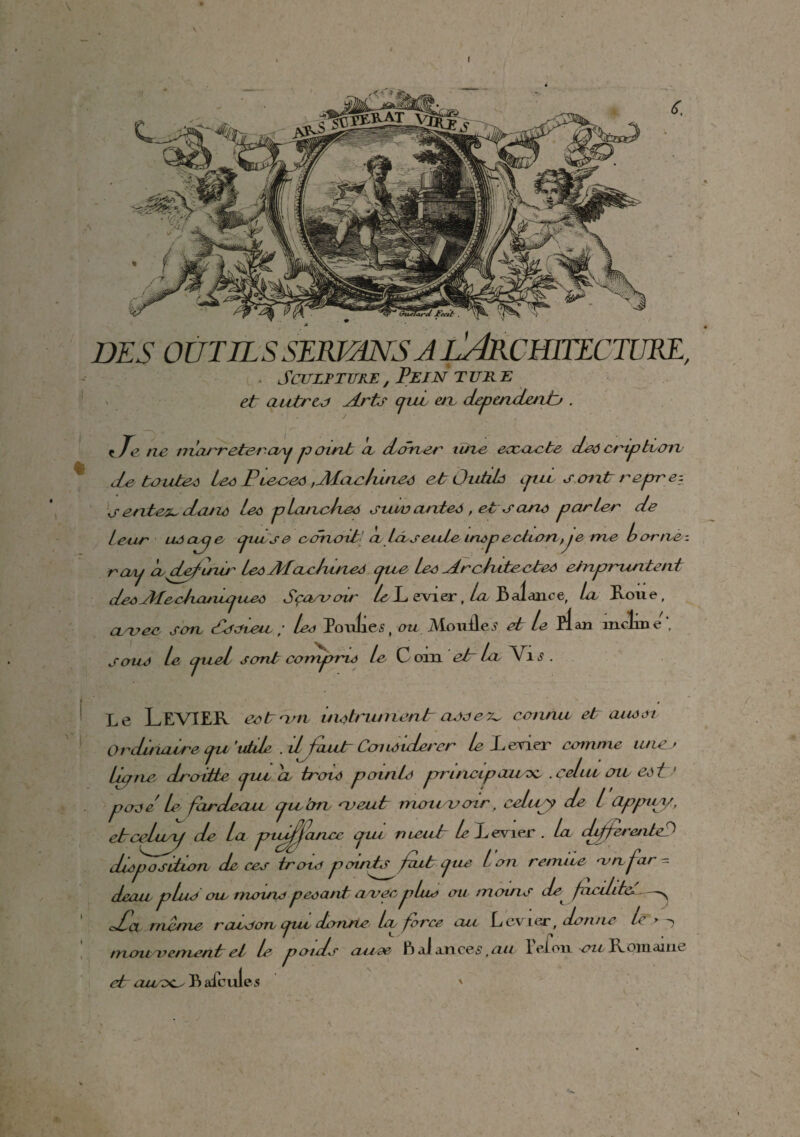 6.
ARS SUPERAT VIRES
Fecit.
DES OUTILS SERVANS A L'ARCHITECTURE,
SCULPTURE, PEINTURE
et autres Arts qui en dependent.
Je ne m'arreteray point a dôner une exacte description
de toutes les Pieces, Machines et Outils qui sont repre=
sentez dans les planches suivantes, et sans parler de
leur usage qui se cônoit a la seule inspection, je me borne=
ray a definir les Machines que les Architectes empruntent
des Mechaniques Sçavoir le Levier, la Balance, la Roüe,
avec son Essieu; les Poulies, ou Moufles et le Plan incliné,
sous le quel sont compris le Coin et la Vis.
Le LEVIER est vn instrument assez connu et aussi
Ordinaire qu'utile. il faut Considerer le Levier comme une
ligne droitte qui a trois points principaux. celui ou est
posé le fardeau qu'on veut mouvoir, celuy de l'appuy,
et celuy de la puissance qui meut le Levier. la differente
disposition de ces trois points fait que l'on remüe vn far=
deau plus ou moins pesant avec plus ou moins de facilité.
La même raison qui donne la force au Levier, donne le
mouvement et le poids aux Balances, au Peson ou Romaine
et aux Bascules